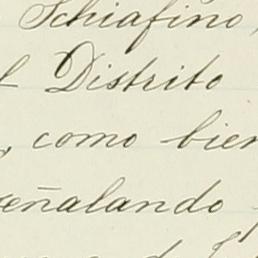 Schiafino,
l Distrito
, como bien
eñalando